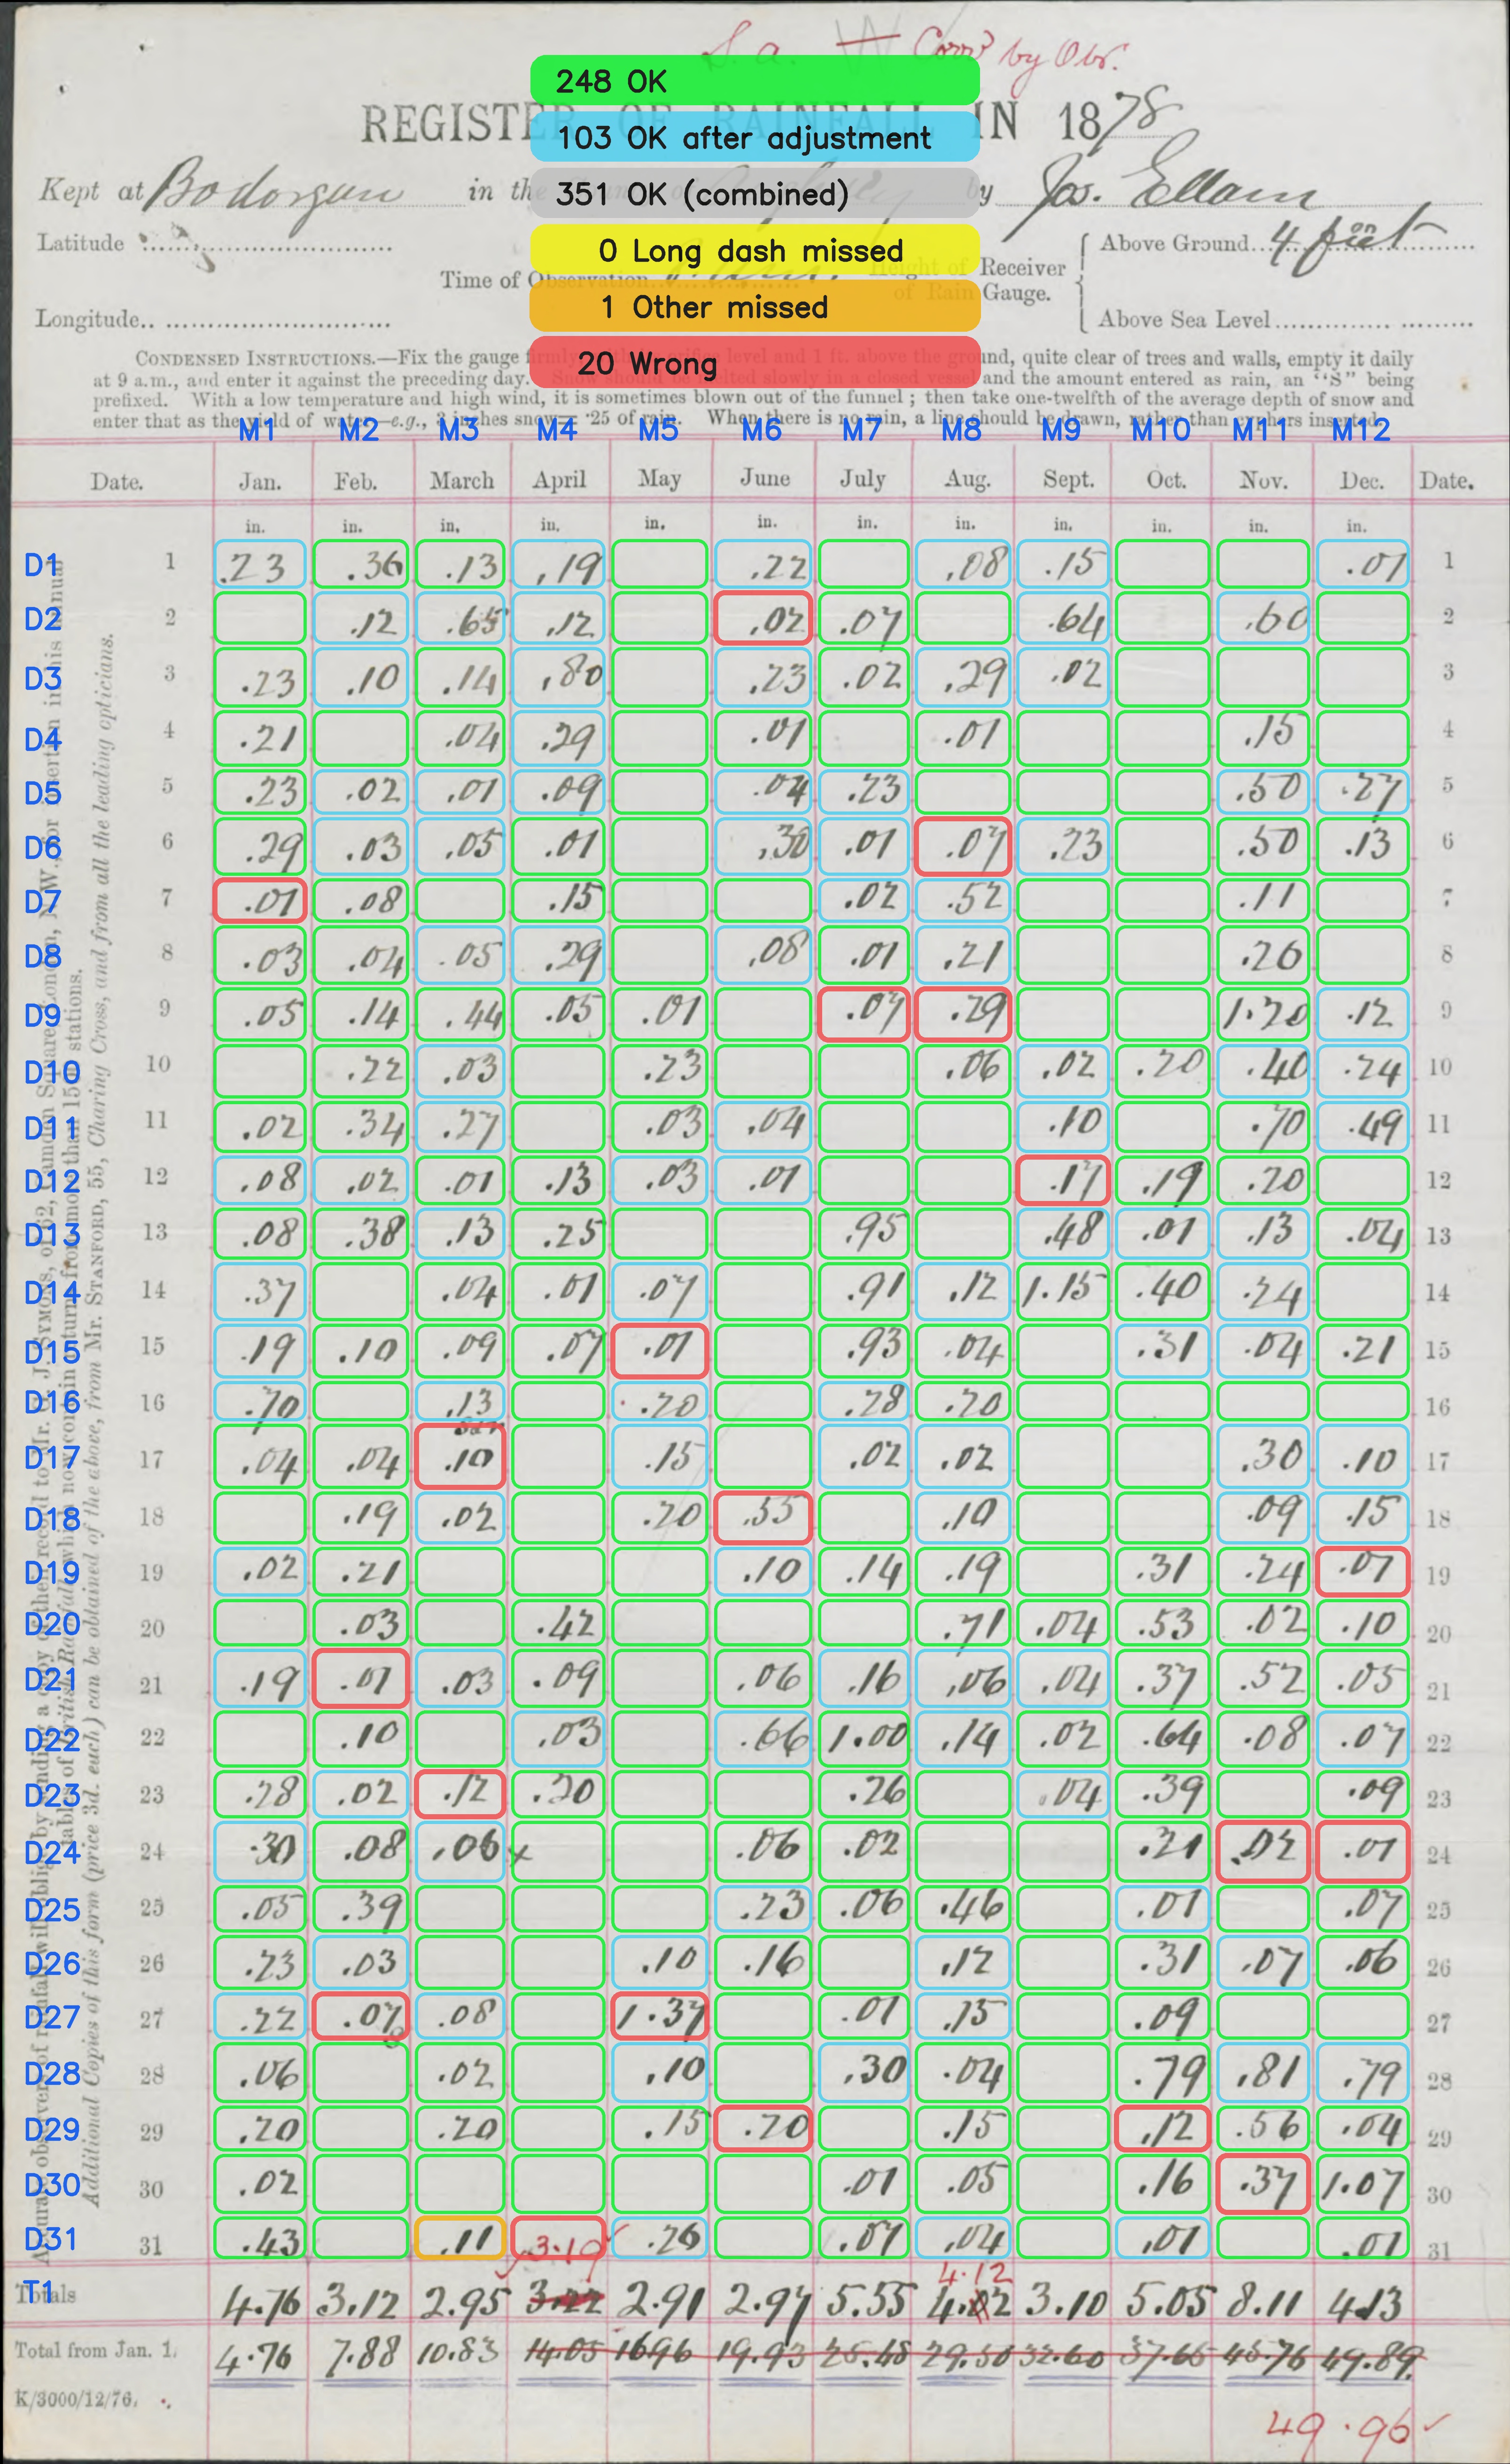 S. a. W Corrd by Obs.
248 OK
103 OK after adjustment
351 OK (combined)
0 Long dash missed
1 Other missed
20 Wrong
REGISTER OF RAINFALL IN 1878
Kept at Bodorgan in the by Jos. Ellam
Latitude
Time of Observation Height of Receiver of Rain Gauge. Above Ground 4 feet
Longitude Above Sea Level
CONDENSED INSTRUCTIONS.—Fix the gauge firmly level and 1 ft. above the ground, quite clear of trees and walls, empty it daily
at 9 a.m., and enter it against the preceding day. Snow should be melted slowly in a closed vessel and the amount entered as rain, an "S" being
prefixed. With a low temperature and high wind, it is sometimes blown out of the funnel ; then take one-twelfth of the average depth of snow and
enter that as the yield of water—e.g., 3 inches snow = ·25 of rain. When there is no rain, a line should be drawn, rather than cyphers inserted.
M1 M2 M3 M4 M5 M6 M7 M8 M9 M10 M11 M12
Date. Jan. Feb. March April May June July Aug. Sept. Oct. Nov. Dec. Date.
in. in. in. in. in. in. in. in. in. in. in. in.
D1 1 .23 .36 .13 .19 .22 .08 .15 .01 1
D2 2 .12 .65 .12 .02 .07 .64 .60 2
D3 3 .23 .10 .14 .80 .23 .02 .29 .02 3
D4 4 .21 .04 .29 .01 .01 .15 4
D5 5 .23 .02 .01 .09 .04 .23 .50 .27 5
D6 6 .29 .03 .05 .01 .30 .01 .07 .23 .50 .13 6
D7 7 .01 .08 .15 .02 .52 .11 7
D8 8 .03 .04 .05 .29 .08 .01 .21 .26 8
D9 9 .05 .14 .44 .05 .01 .07 .29 1.20 .12 9
D10 10 .22 .03 .23 .06 .02 .20 .40 .24 10
D11 11 .02 .34 .27 .03 .04 .10 .70 .49 11
D12 12 .08 .02 .01 .13 .03 .01 .17 .19 .20 12
D13 13 .08 .38 .13 .25 .95 .48 .01 .13 .04 13
D14 14 .37 .04 .01 .07 .91 .12 1.15 .40 .24 14
D15 15 .19 .10 .09 .07 .01 .93 .04 .31 .04 .21 15
D16 16 .70 .13 .20 .28 .20 16
D17 17 .04 .04 .10 .15 .02 .02 .30 .10 17
D18 18 .19 .02 .20 .55 .10 .09 .15 18
D19 19 .02 .21 .10 .14 .19 .31 .24 .07 19
D20 20 .03 .42 .71 .04 .53 .02 .10 20
D21 21 .19 .01 .03 .09 .06 .16 .06 .04 .37 .52 .05 21
D22 22 .10 .03 .66 1.00 .14 .02 .64 .08 .07 22
D23 23 .28 .02 .12 .20 .26 .04 .39 .09 23
D24 24 .30 .08 .06 x .06 .02 .21 .02 .01 24
D25 25 .05 .39 .23 .06 .46 .01 .07 25
D26 26 .23 .03 .10 .16 .12 .31 .07 .06 26
D27 27 .22 .07 .08 1.37 .01 .15 .09 27
D28 28 .06 .02 .10 .30 .04 .79 .81 .79 28
D29 29 .20 .20 .15 .20 .15 .12 .56 .04 29
D30 30 .02 .01 .05 .16 .37 1.07 30
D31 31 .43 .11 3.19 .26 .07 .04 .01 .01 31
4.12
T1 Totals 4.76 3.12 2.95 3.22 2.91 2.97 5.55 4.02 3.10 5.05 8.11 4.13
Total from Jan. 1. 4.76 7.88 10.83 14.05 16.96 19.93 25.48 29.50 32.60 37.65 45.76 49.89
K/3000/12/76.
49.96
Additional Copies of this form (price 3d. each) can be obtained of the above, from Mr. STANFORD, 55, Charing Cross, and from all the leading opticians.